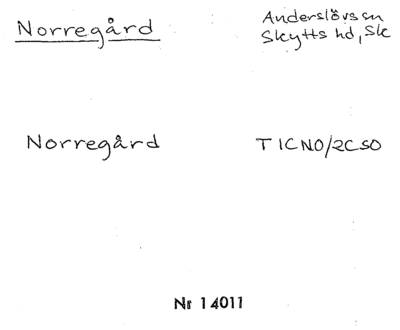 Norregård
Anderslövs sn
Skytts hd, Sk
Norregård
TICNO/2CSO
Nr 14011